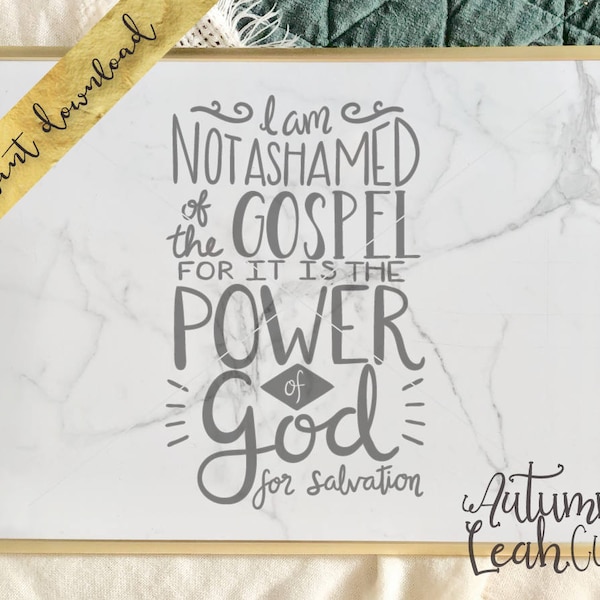 download
I am
NOT ASHAMED
of the GOSPEL
FOR IT IS THE
POWER
of
God
for salvation
Autumn
Leah